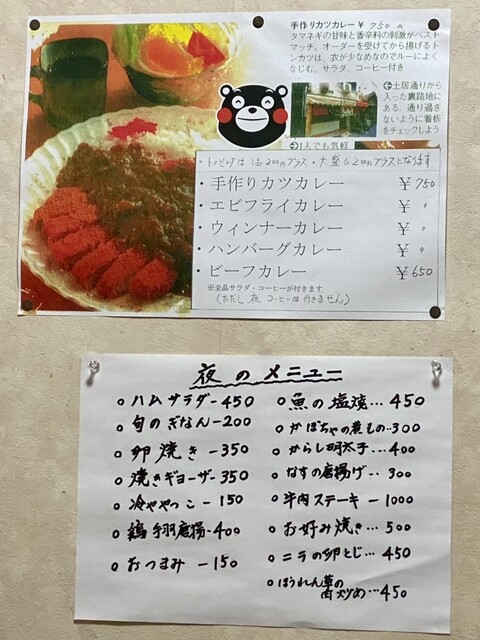 手作りカツカレー ￥750
タマネギの甘味と香辛料の刺激がベスト
マッチ。オーダーを受けてから揚げるトー
ンカツは、衣が少なめなのでルーによく
なじむ。サラダ、コーヒー付き
土居通りから
入った裏路地に
ある。通り過ぎ
ないように看板
をチェックしよう
1人でも気軽
トッピングは1品200円プラス・大盛も200円プラスになります
・手作りカツカレー ￥750
・エビフライカレー ￥〃
・ウィンナーカレー ￥〃
・ハンバーグカレー ￥〃
・ビーフカレー ￥650
※全品サラダ・コーヒーが付きます。
(ただし、夜 コーヒーは付きません)
夜のメニュー
ハムサラダー450
旬のぎなんー200
卵焼きー350
焼きギョーザー350
冷ややっこー150
鶏手羽唐揚ー400
おつまみー150
魚の塩焼…450
かぼちゃの煮もの…300
からし明太子…400
なすの唐揚げ…300
牛肉ステーキー1000
お好み焼き…500
ニラの卵とじ…450
ほうれん草の
肉炒め…450